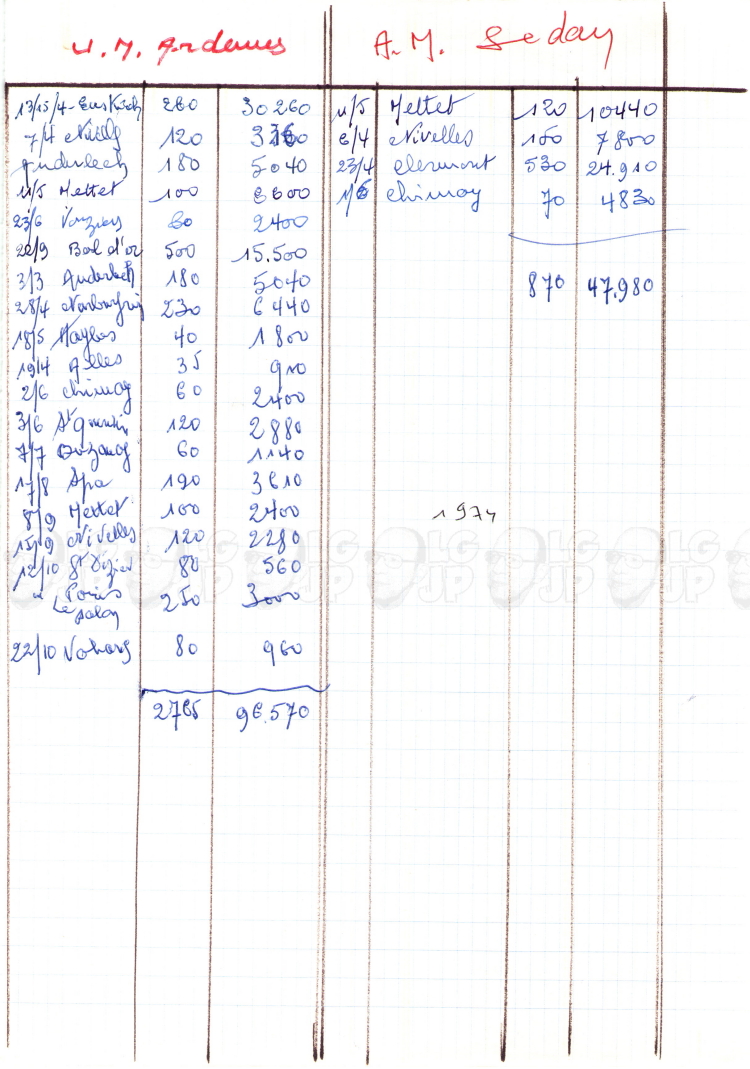 U. M. Ardennes
A. M. Sedan
13/15/4 260 30260
7/4 Neuilly 120
Anderlech 180 5040
11/5 Mettet 100 6600
23/6 Vouziers 60 2400
20/9 Bol d'or 500 15.500
3/3 Anderlech 180 5040
28/4 230 6440
18/5 40 1800
19/4 35 910
2/6 Chimay 60 2400
3/6 St Quentin 120 2880
7/7 60 1140
17/8 Spa 190 3610
8/9 Mettet 100 2400
15/9 Nivelles 120 2280
12/10 St Dizier 80 560
" Paris 250 3000
Le Salon
22/10 80 960
2765 96.570
11/5 Mettet 120 10440
6/4 Nivelles 150 7800
23/4 Clermont 530 24.910
1/6 Chimay 70 4830
870 47.980
1974
LG
JP